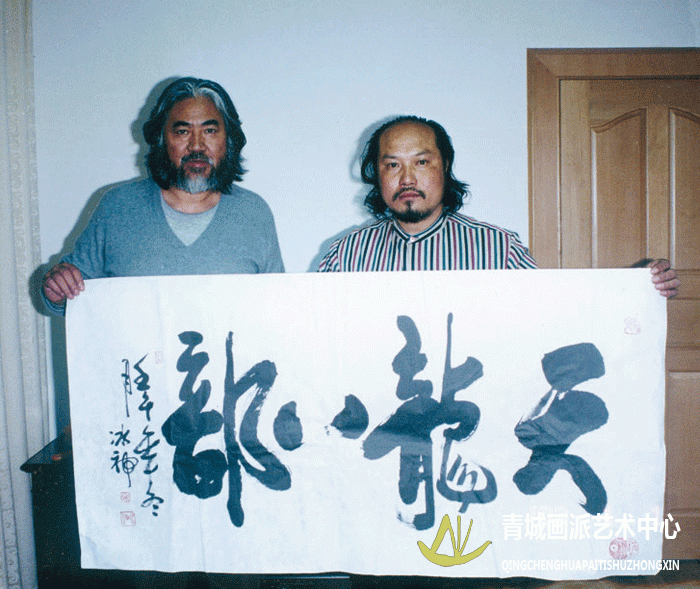 天龍八部
壬午冬
月冰神
青城画派艺术中心
QINGCHENGHUAPAITISHUZHONGXIN